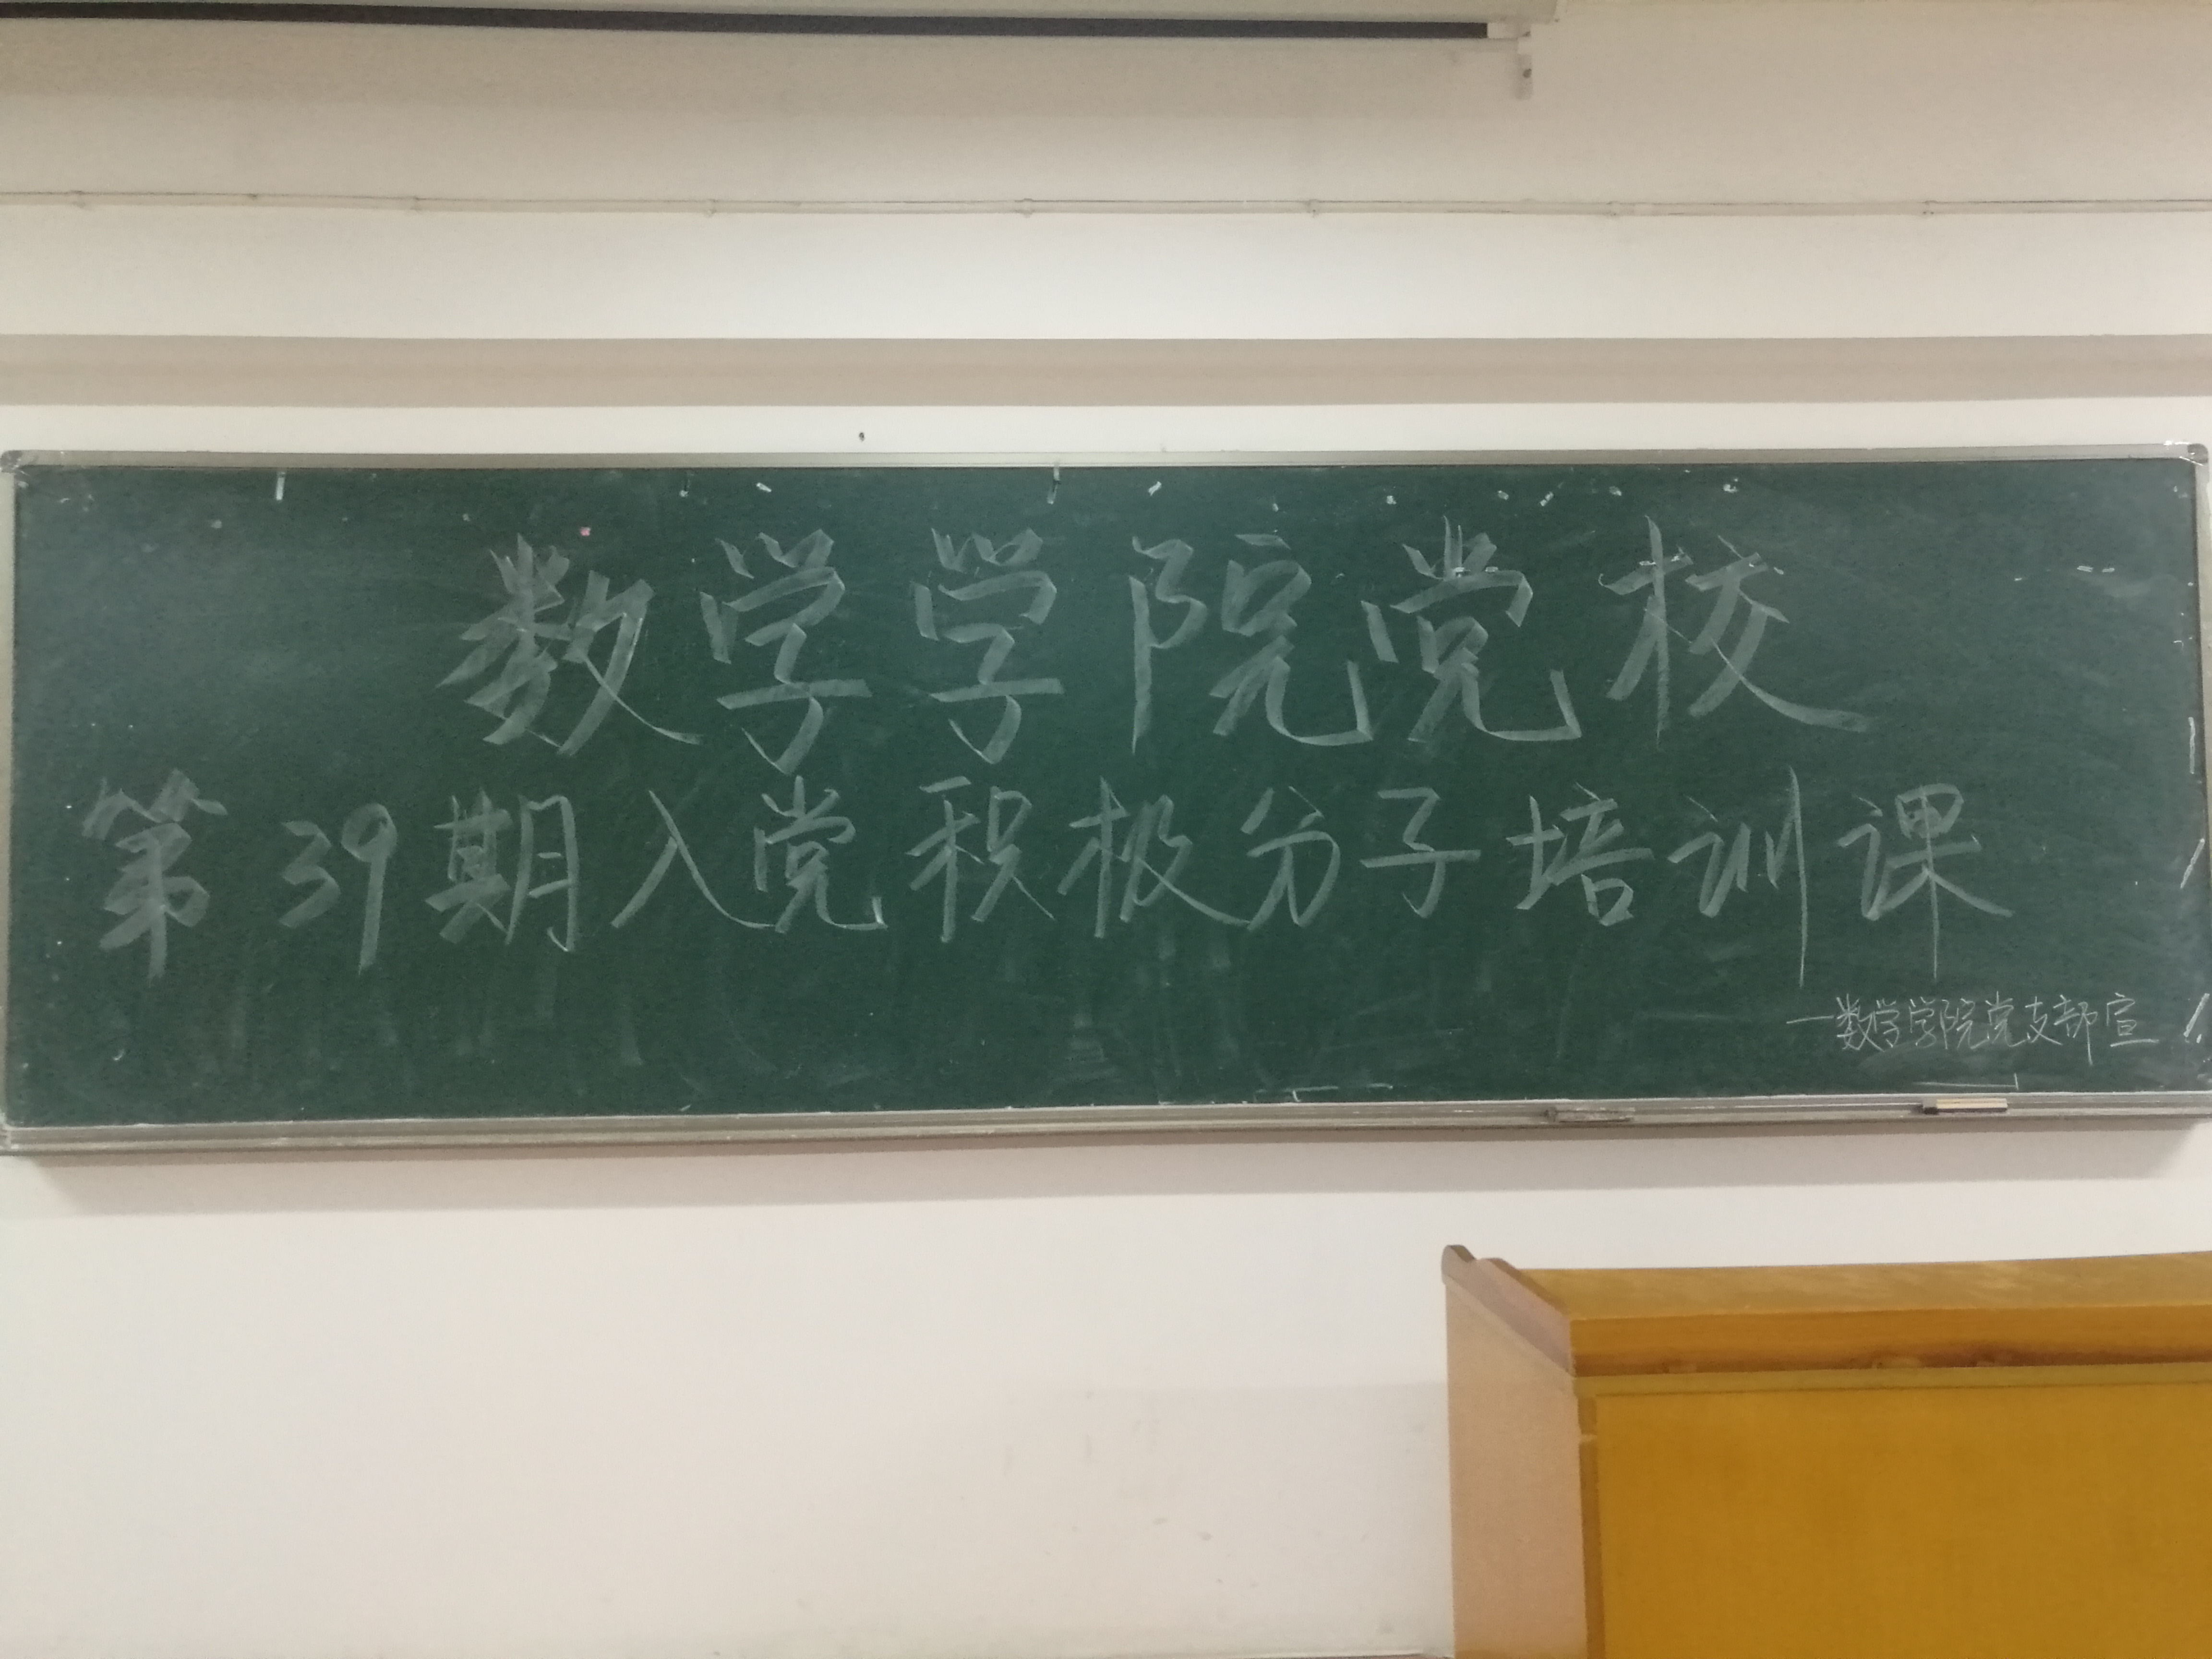 数学学院党校
第39期入党积极分子培训课
—数学学院党支部宣